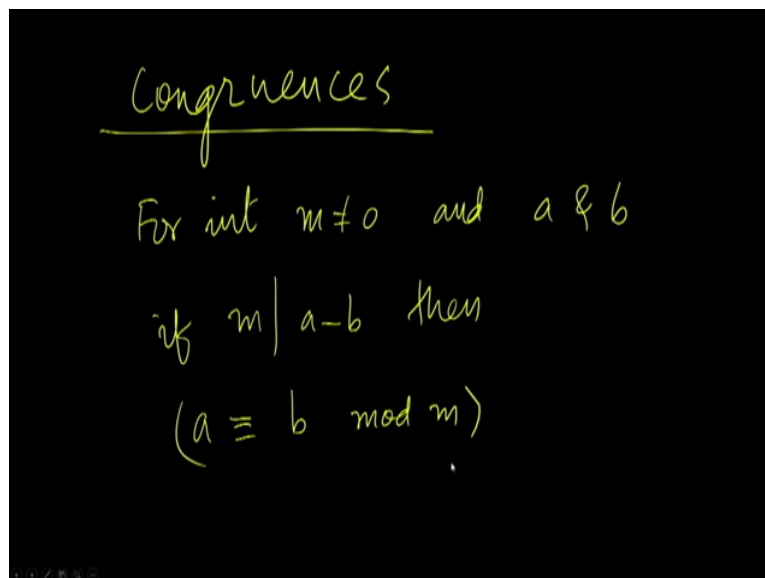 Congruences
For int m≠0 and a & b
if m | a-b then
(a ≡ b mod m)